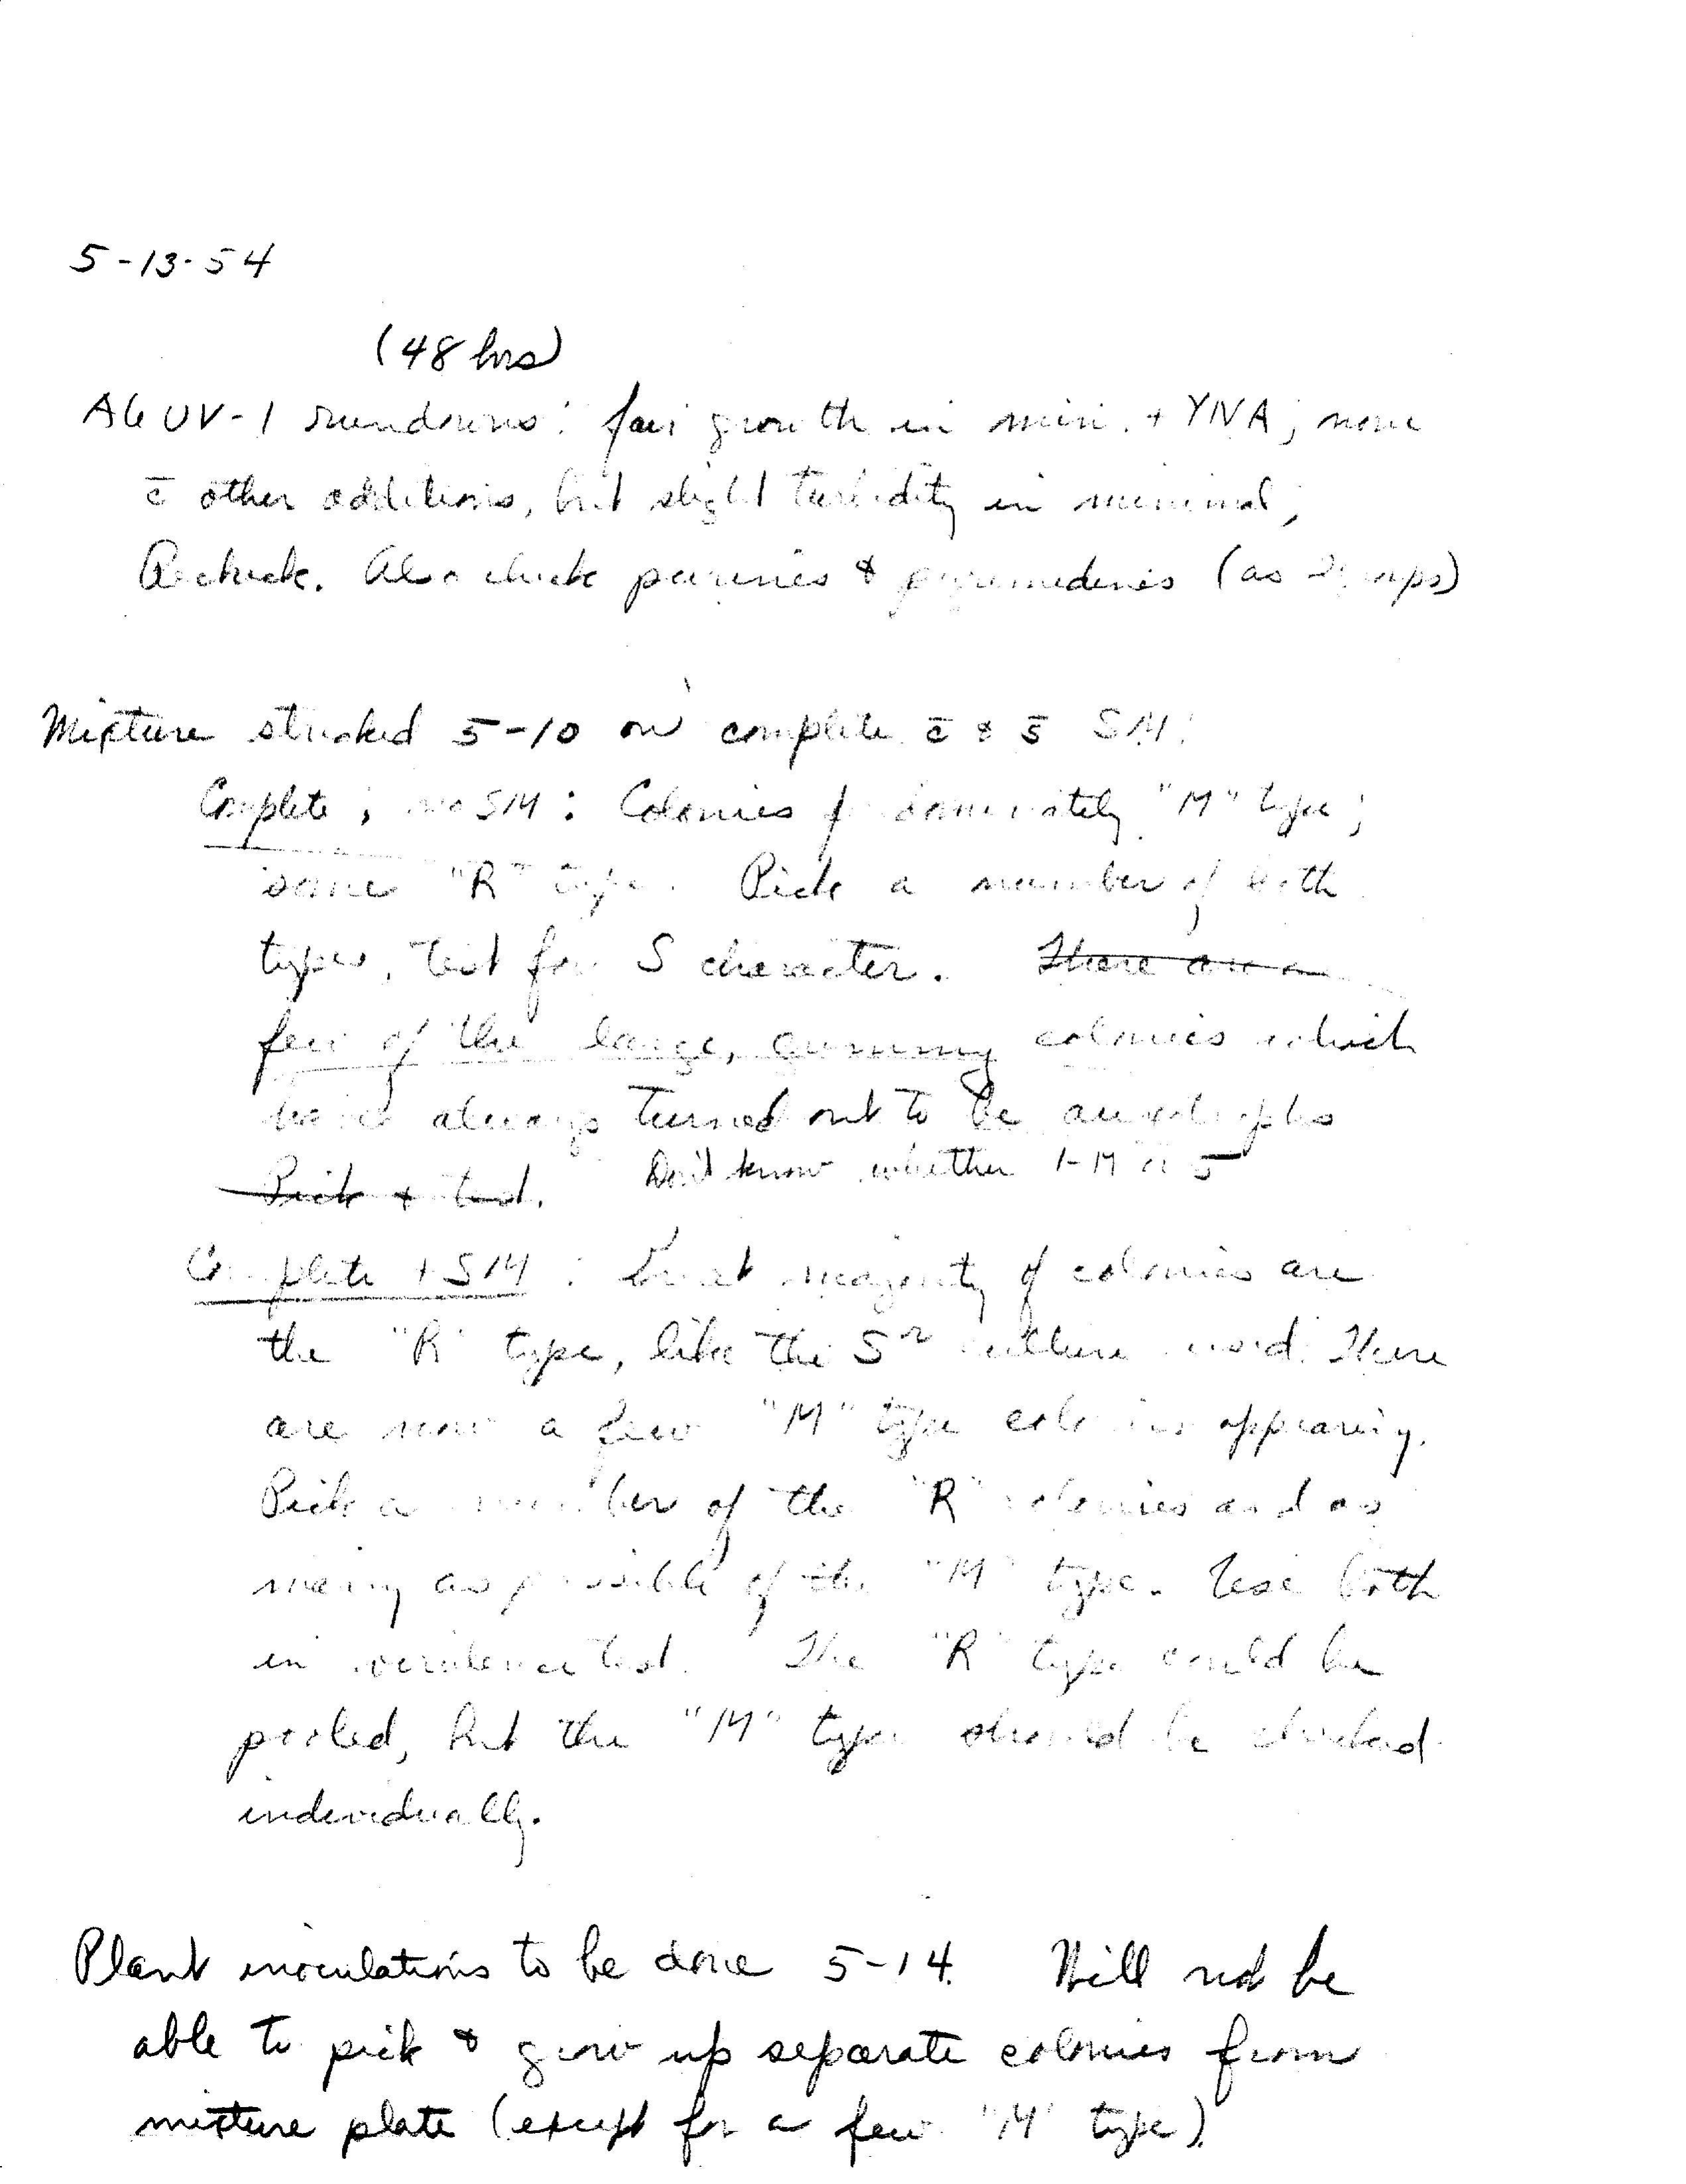 5-13-54
(48 hrs)
A6 UV-1 rundowns: fair growth in min. + YNA; none
c̄ other additions, but slight turbidity in minimal;
Recheck. Also check purines & pyrimidines (as
Mixture streaked 5-10 on complete c̄ & s̄ SM:
Complete, no SM: Colonies predominately "M" type;
some "R" type. Pick a number of both
types, test for S character. There are a
few of the large, gummy colonies which
have always turned out to be auxotrophs
Pick & test. Don't know whether
Complete + SM: Great majority of colonies are
the "R" type, like the Sʳ culture used. There
are now a few "M" type colonies appearing.
Pick a number of the "R" colonies and as
many as possible of the "M" type. Use both
in virulence test. The "R" type could be
pooled, but the "M" type should be checked
individually.
Plant inoculations to be done 5-14. Will not be
able to pick & grow up separate colonies from
mixture plate (except for a few "M" type).